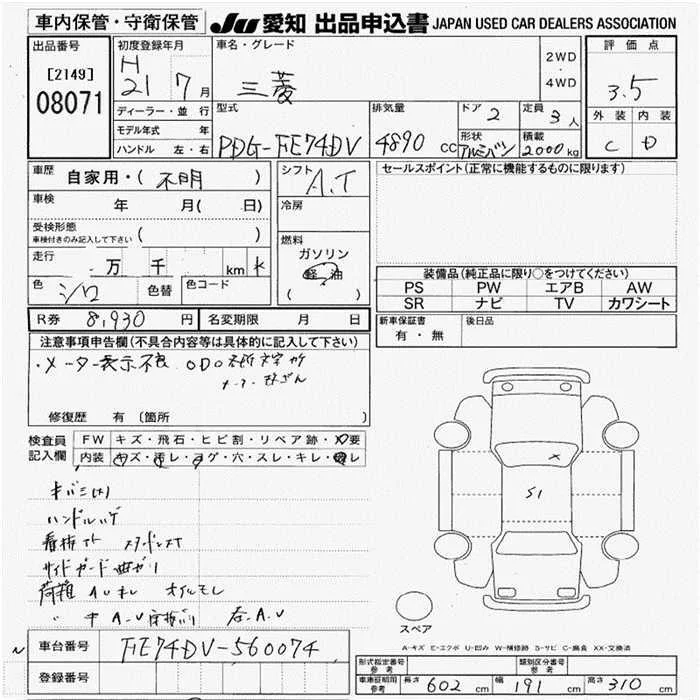 車内保管・守衛保管
JU 愛知 出品申込書 JAPAN USED CAR DEALERS ASSOCIATION
出品番号
[2149]
08071
初度登録年月
H
21 7 月
ディーラー・並行
モデル年式 年
ハンドル 左・右
車名・グレード
三菱
2WD
4WD
評価点
3.5
外装 内装
C D
型式
PDG-FE74DV
排気量
4890 cc
ドア 2
形状
アルミバン
定員
3 人
積載
2000 kg
車歴 自家用・( 不明 )
車検 年 月( 日)
受検形態
車検付きのみ記入して下さい ( )
走行 万 千 km
色 シロ 色替 色コード
シフト A.T
冷房
燃料
ガソリン
軽油
( )
セールスポイント(正常に機能するものに限ります)
装備品(純正品に限り○をつけてください)
PS PW エアB AW
SR ナビ TV カワシート
R券 8,930 円 名変期限 月 日
新車保証書
有・無
後日品
注意事項申告欄(不具合内容等は具体的に記入して下さい)
・メーター表示不良 ODO
修復歴 有 (箇所
検査員
記入欄
FW キズ・飛石・ヒビ割・リペア跡・X要
内装 キズ・汚レ・コゲ・穴・スレ・キレ・レ
キバミ(大)
ハンドルハゲ
看板アト
サイドガード曲ガリ
荷箱 AUキレ オイルモレ
〃 中 A.U 右A.U
X
S1
スペア
A-キズ E-エクボ U-凹み W-補修跡 S-サビ C-腐食 XX-交換済
車台番号 FE74DV-560074
登録番号
型式指定番号
参考
類別区分番号
参考
車庫証明用
参考
長さ 602 cm 幅 191 cm 高さ 310 cm